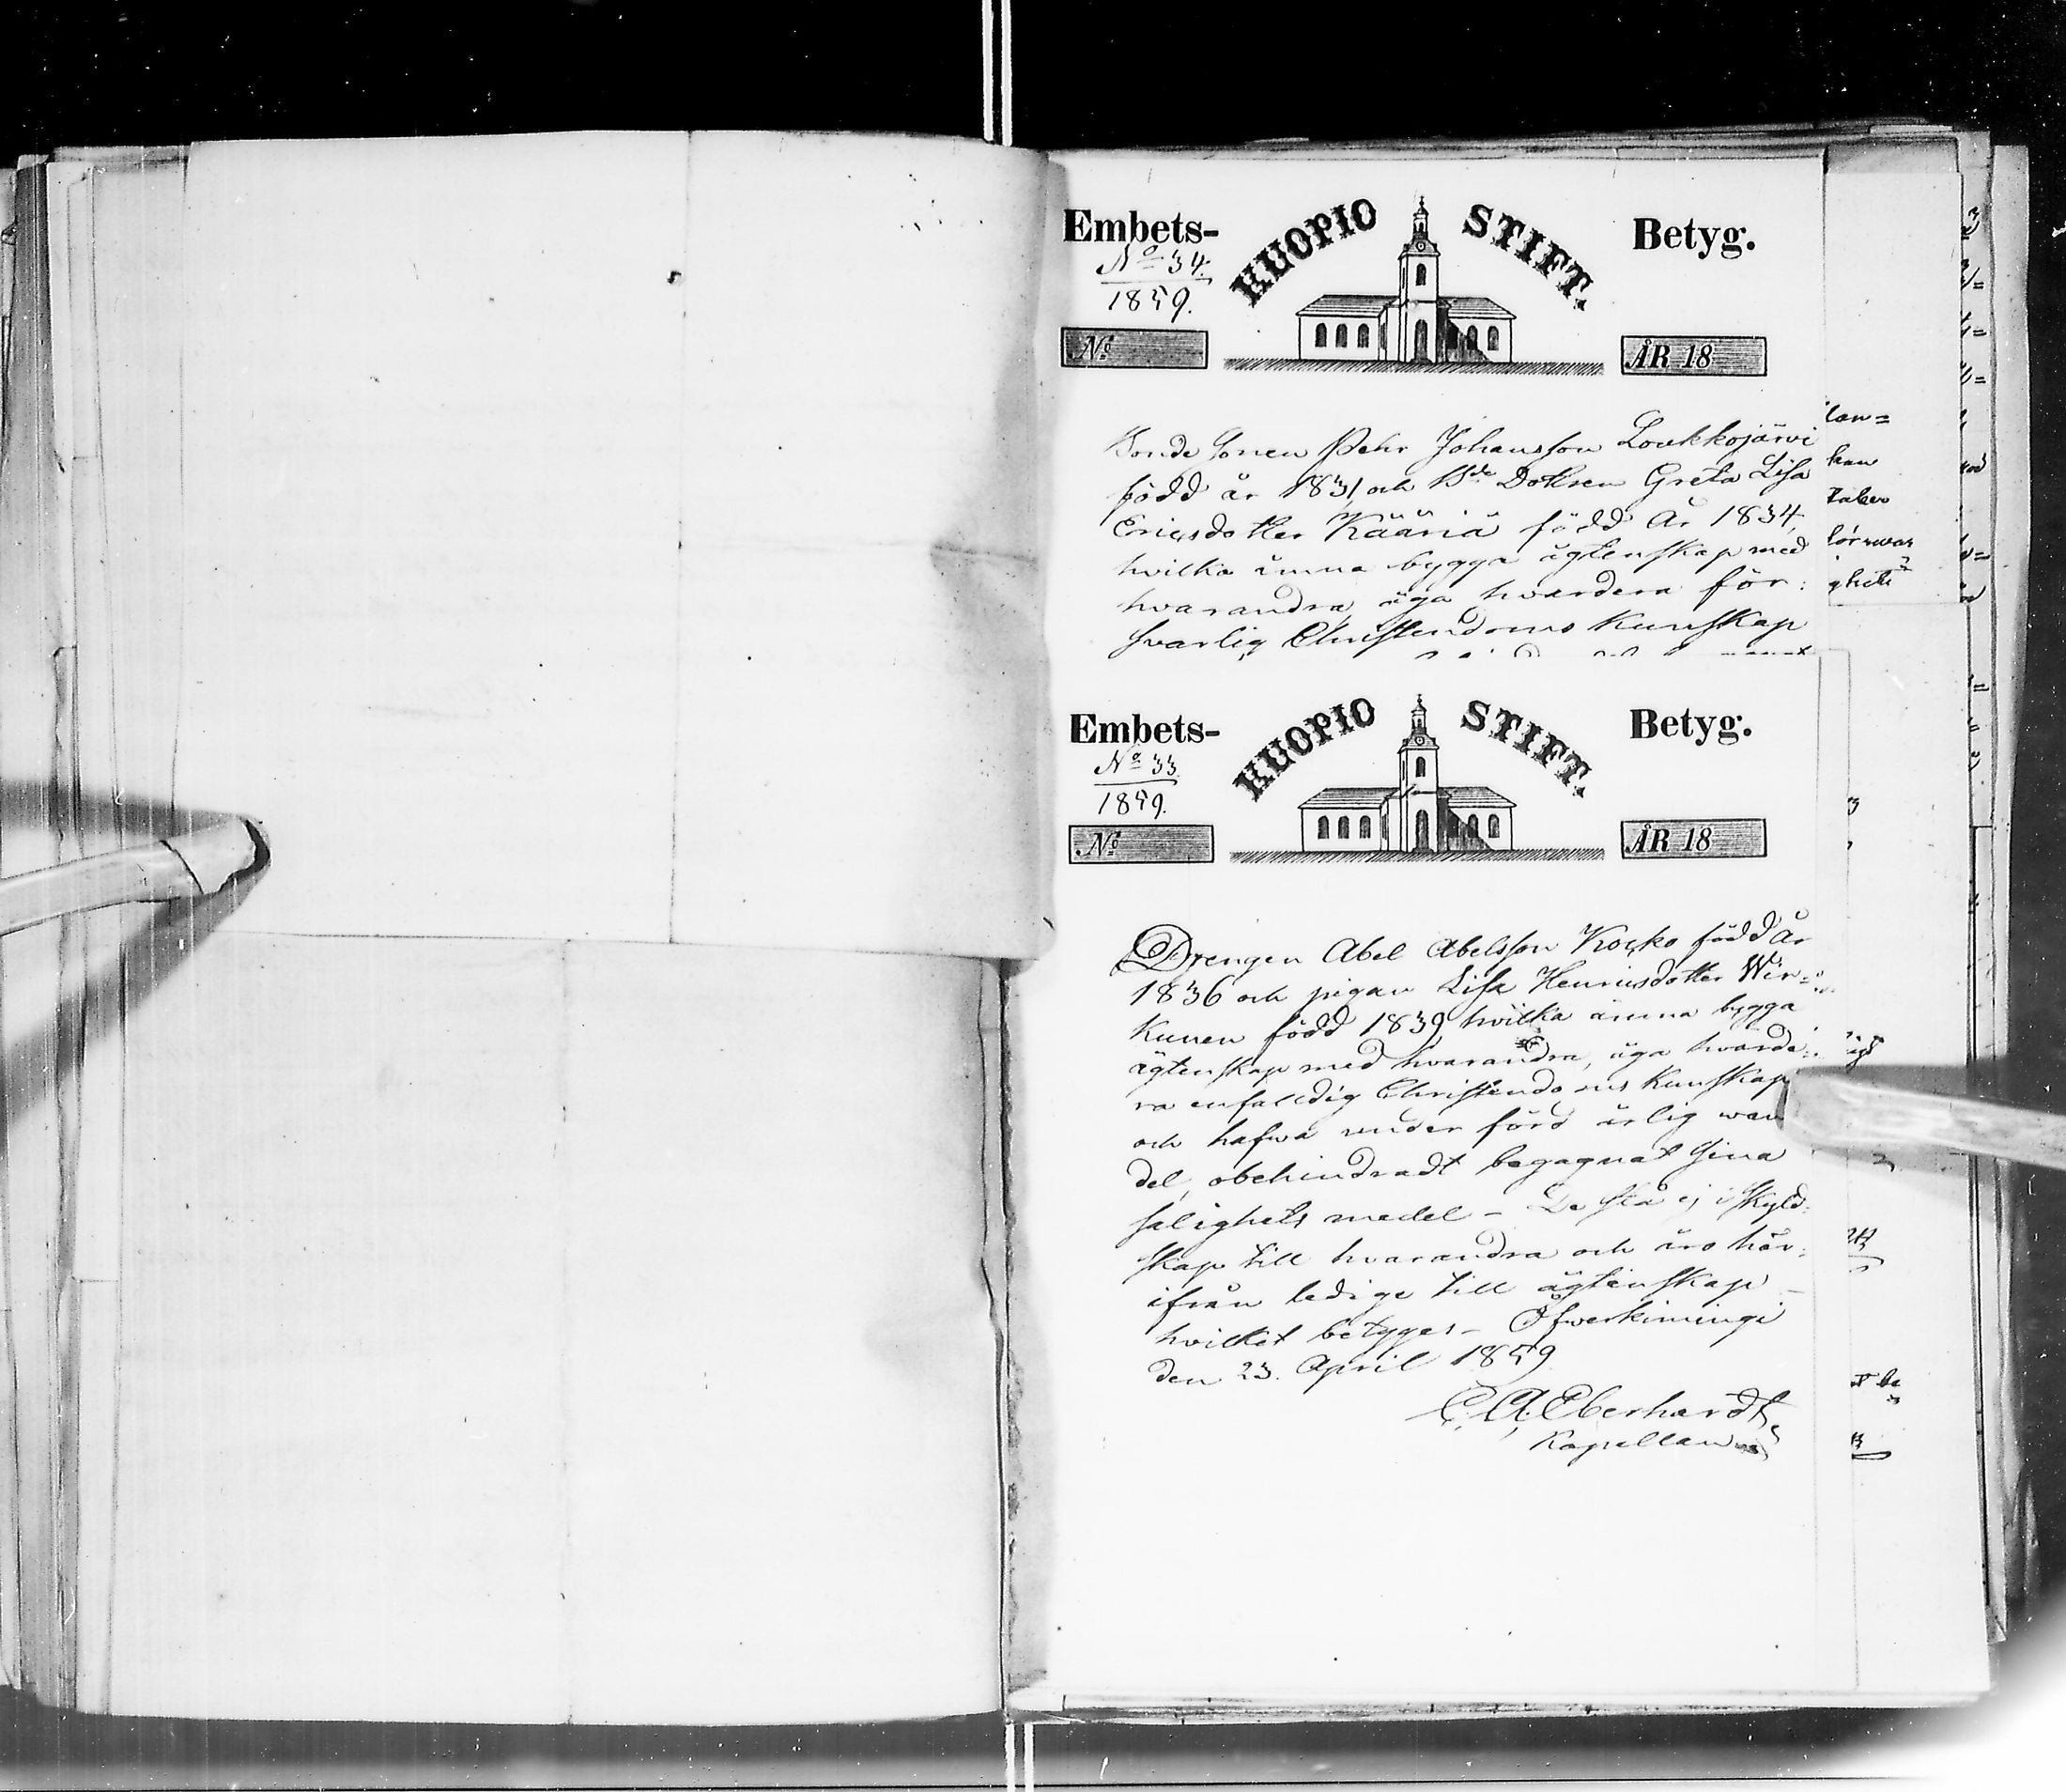 Embets- KUOPIO STIFT. Betyg.
No 34.
1859.
No ÅR 18
Bonde Sonen Pehr Johansson Loukkojärvi
född år 1831 och Bde Dottren Greta Lisa
Ericsdotter Kääriä född År 1834,
hvilka ämna bygga ägtenskap med
hvarandra, äga hvardera för:
svarlig Christendoms Kunskap
Embets- KUOPIO STIFT. Betyg.
No 33
1859.
No ÅR 18
Drengen Abel Abelsson Kocko född år
1836 och pigan Lisa Henricsdotter Wir-
kunen född 1839, hvilka ämna bygga
ägtenskap med hvarandra, äga hvarde:
ra enfalldig Christendoms Kunskap
och hafwa under förd ärlig wan
del, obehindradt begagnat sina
salighets medel - De stå ej i skyld:
skap till hvarandra och äro här:
ifrån ledige till ägtenskap -
hvilket betyges - Öfwerkimingi
den 23. April 1859
C. A. Eberhardt,
Kapellan